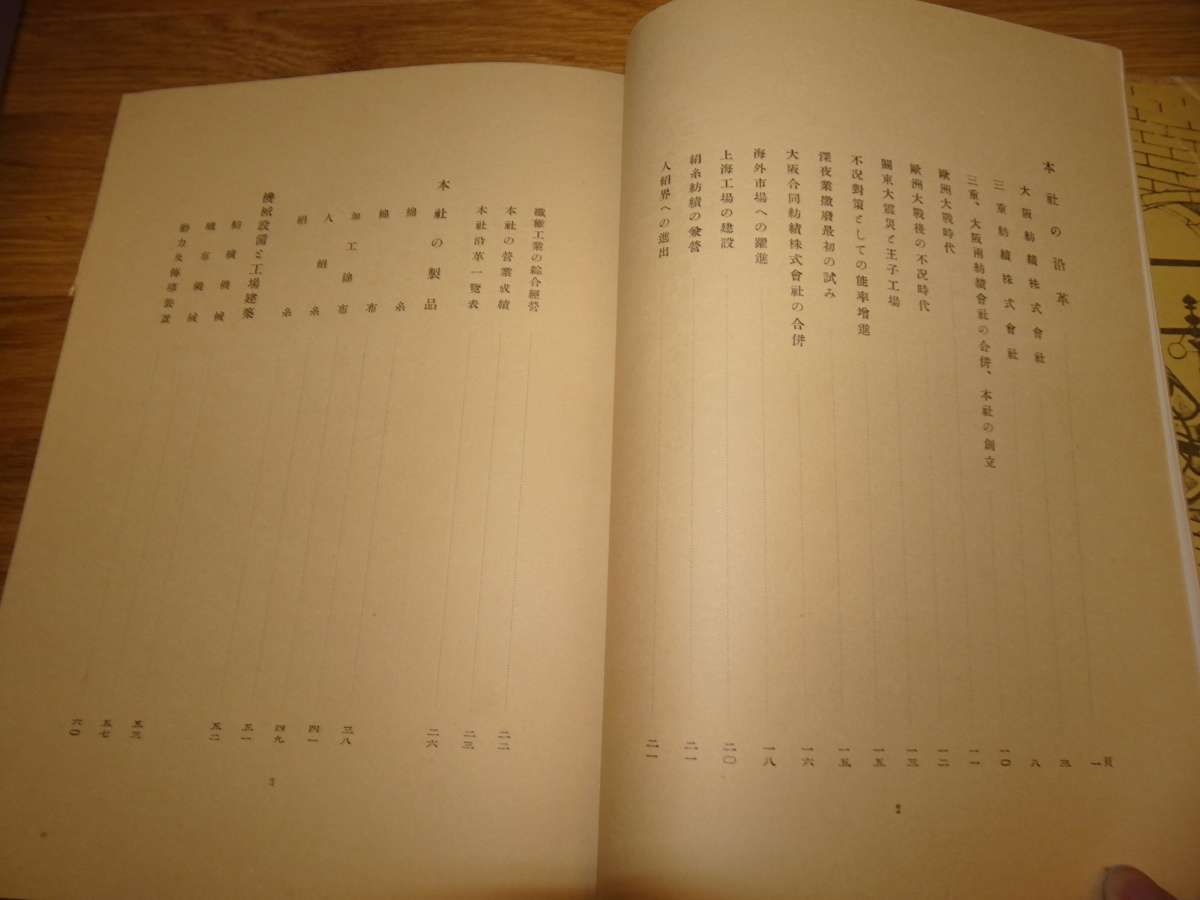 本社の沿革 一頁
大阪紡績株式會社 三
三重紡績株式會社 八
三重、大阪兩紡績會社の合併、本社の創立 一〇
歐洲大戰時代 一一
歐洲大戰後の不況時代 一二
關東大震災と王子工場 一三
不況對策としての能率增進 一五
深夜業撤廢最初の試み 一五
大阪合同紡績株式會社の合併 一六
海外市場への躍進 一八
上海工場の建設 二〇
絹糸紡績の兼營 二一
人絹界への進出 二一
2
纖維工業の綜合經營 二二
本社の營業成績 二三
本社沿革一覽表 二六
本社の製品
綿糸 三八
綿布 四一
加工綿布 四九
人絹糸 五一
絹糸 五二
機械設備と工場建築
紡績機械 五三
織布機械 五七
動力及傳導裝置 六〇
3